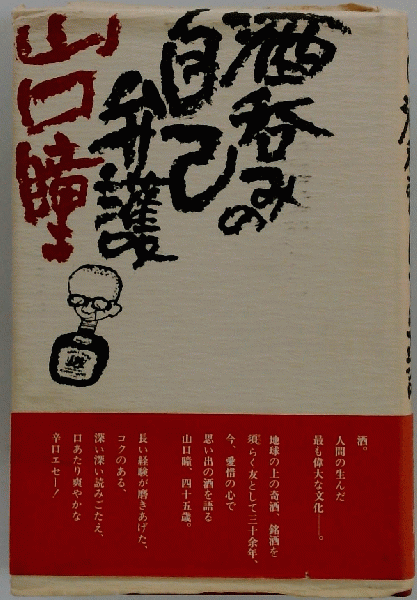 酒呑みの
自己
弁護
山口瞳
酒。
人間の生んだ
最も偉大な文化──。
地球の上の奇酒、銘酒を
須らく友として三十余年、
今、愛惜の心で
思い出の酒を語る
山口瞳、四十五歳。
長い経験が磨きあげた、
コクのある、
深い深い読みごたえ、
口あたり爽やかな
辛口エセー!